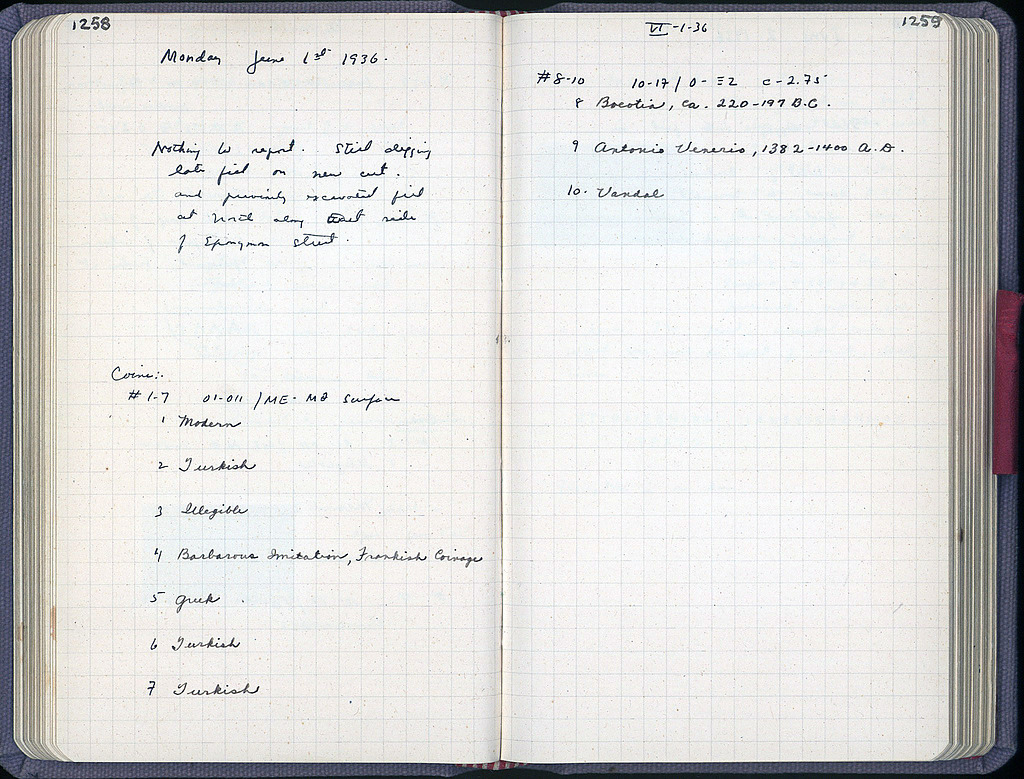 1258
Monday June 1st 1936.
Nothing to report. Still digging
late fill on new cut.
and previously excavated fill
at North along East side
of Eponymon street.
Coins:
#1-7 01-011 / ME-MΘ Surface
1 Modern
2 Turkish
3 Illegible
4 Barbarous Imitation, Frankish Coinage
5 Greek
6 Turkish
7 Turkish
1259
VI-1-36
#8-10 10-17 / 0-Ξ2 c-2.75
8 Boeotia, ca. 220-197 B.C.
9 Antonio Venerio, 1382-1400 A.D.
10. Vandal